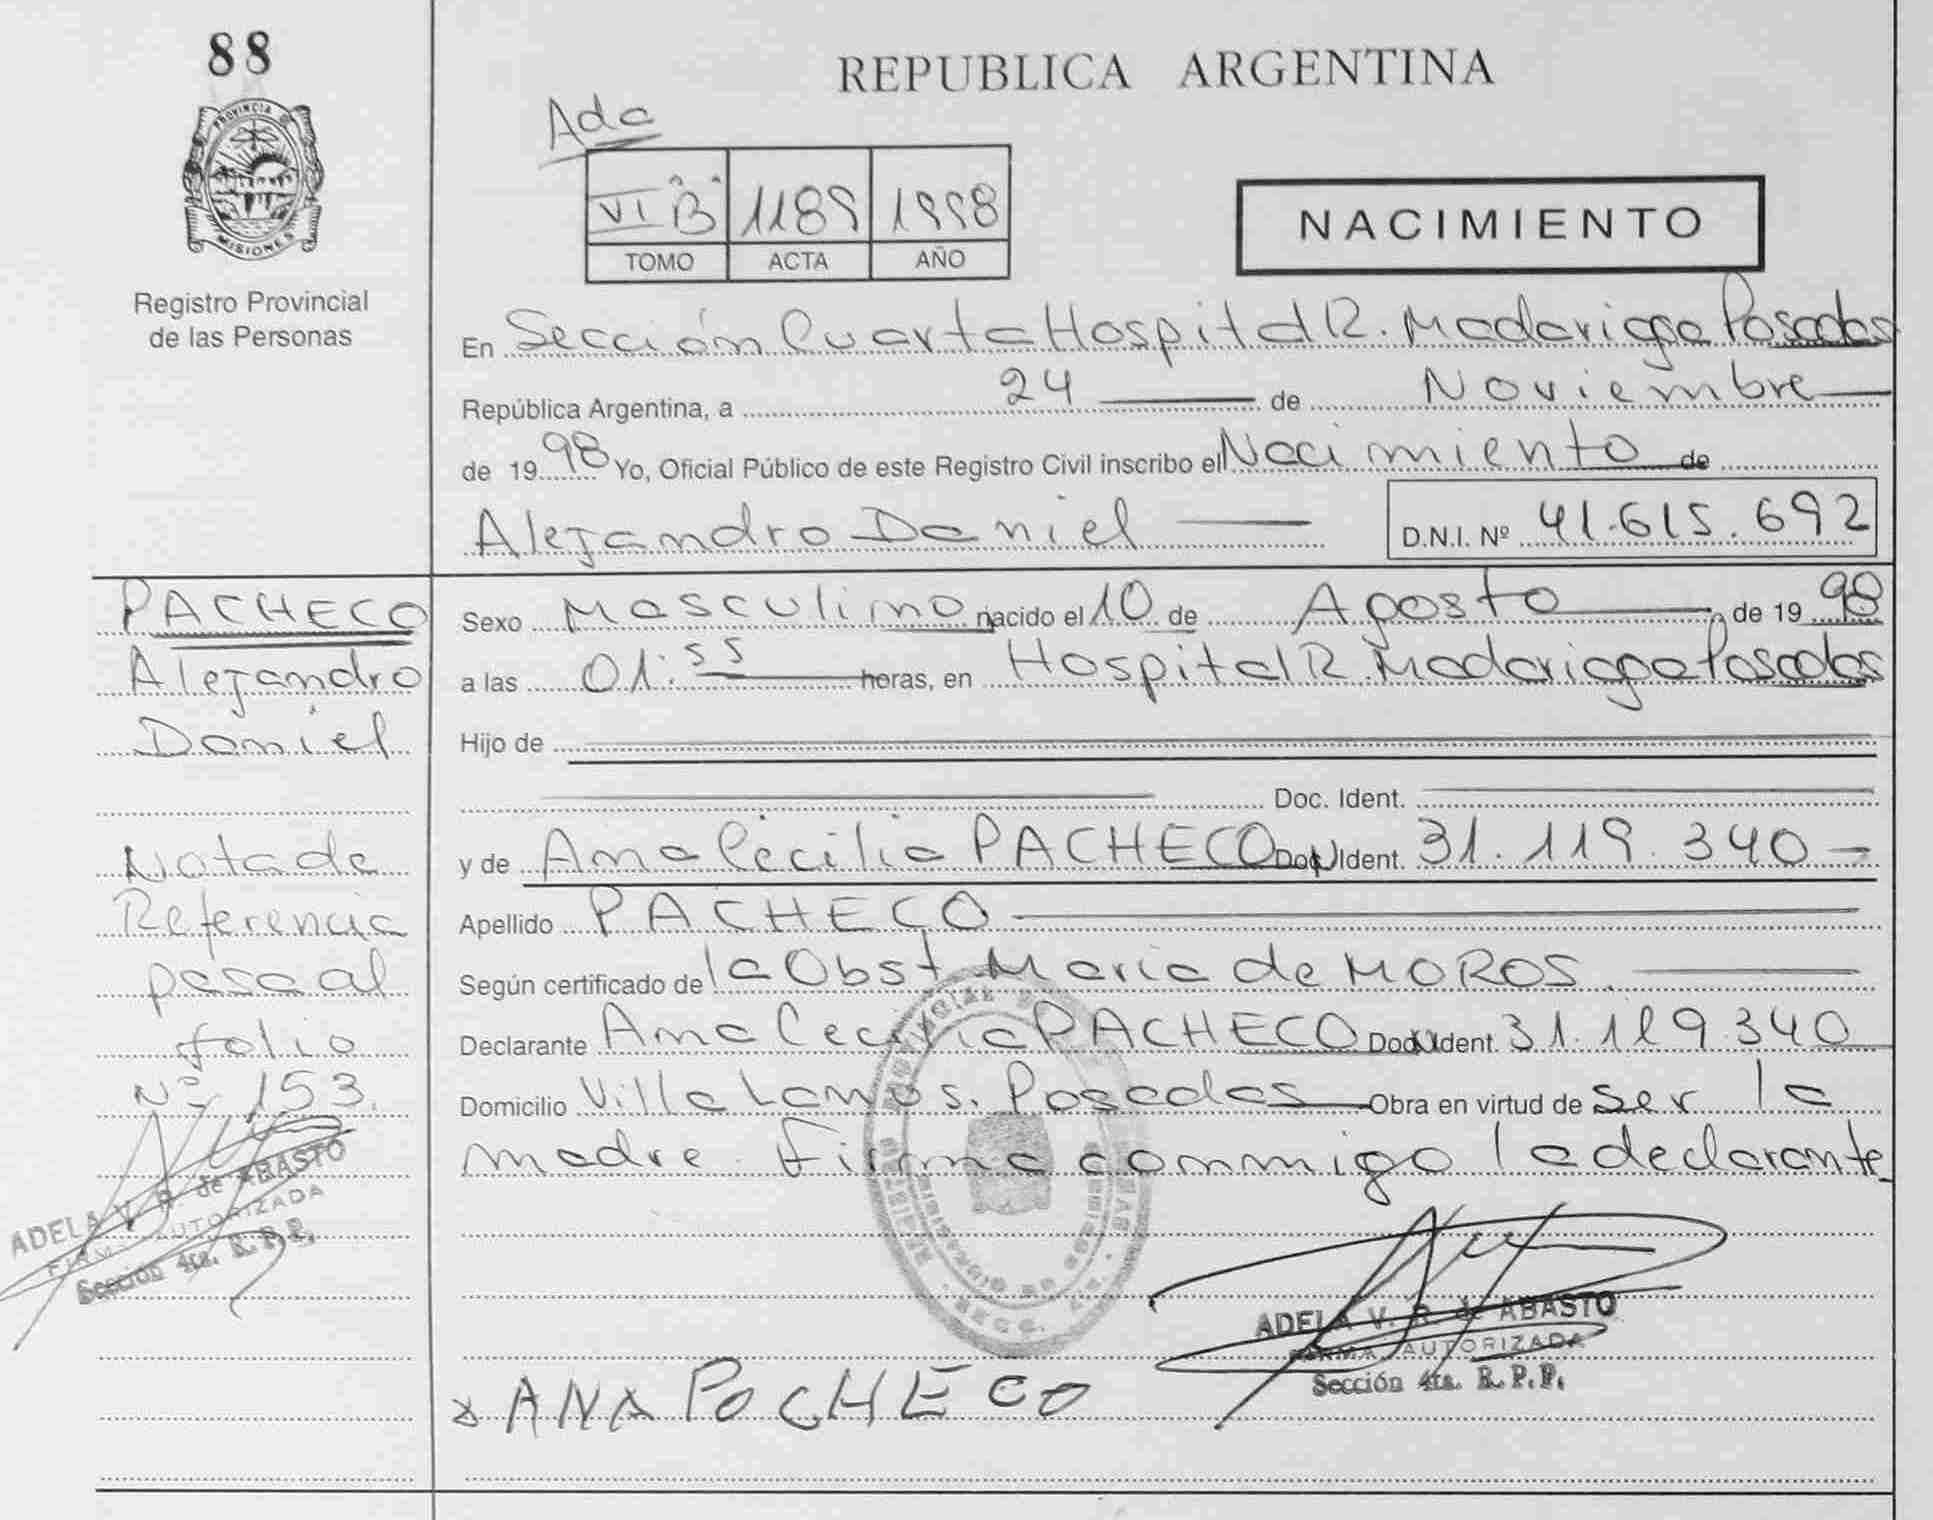 88
PROVINCIA
MISIONES
Registro Provincial
de las Personas
REPUBLICA ARGENTINA
Ada
VI "B" 1189 1998
TOMO ACTA AÑO
NACIMIENTO
En Sección Cuarta Hospital R. Madariaga Posadas
República Argentina, a 24 de Noviembre
de 1998 Yo, Oficial Público de este Registro Civil inscribo el Nacimiento de
Alejandro Daniel D.N.I. Nº 41.615.692
PACHECO
Alejandro
Daniel
Nota de
Referencia
pasa al
folio
Nº 153.
ADELA V. R. de ABASTO
FIRMA AUTORIZADA
Sección 4ta. R.P.P.
Sexo Masculino nacido el 10 de Agosto de 1998
a las 01:55 horas, en Hospital R. Madariaga Posadas
Hijo de
Doc. Ident.
y de Ana Cecilia PACHECO Doc. Ident. 31.119.340
Apellido PACHECO
Según certificado de la Obst. Maria de MOROS.
Declarante Ana Cecilia PACHECO Doc. Ident. 31.119.340
Domicilio Villa Lanús. Posadas Obra en virtud de ser la
madre firma conmigo la declarante
ADELA V. R. de ABASTO
FIRMA AUTORIZADA
Sección 4ta. R.P.P.
x ANA PACHECO